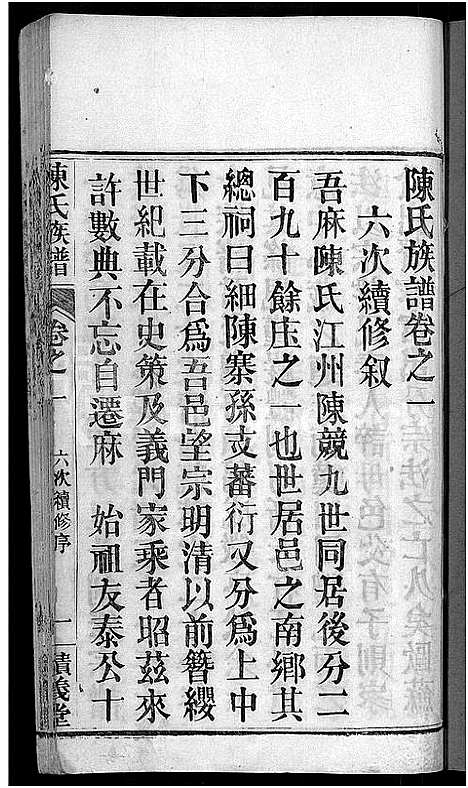 陳氏族譜卷之一
六次續修叙
吾麻陳氏江州陳競九世同居後分二
百九十餘庄之一也世居邑之南鄉其
總祠曰細陳寨孫支蕃衍又分爲上中
下三分合爲吾邑望宗明清以前簪纓
世紀載在史策及義門家乘者昭茲來
許數典不忘自遷麻 始祖友泰公十
陳氏族譜 卷之一 六次續修序 一 義堂